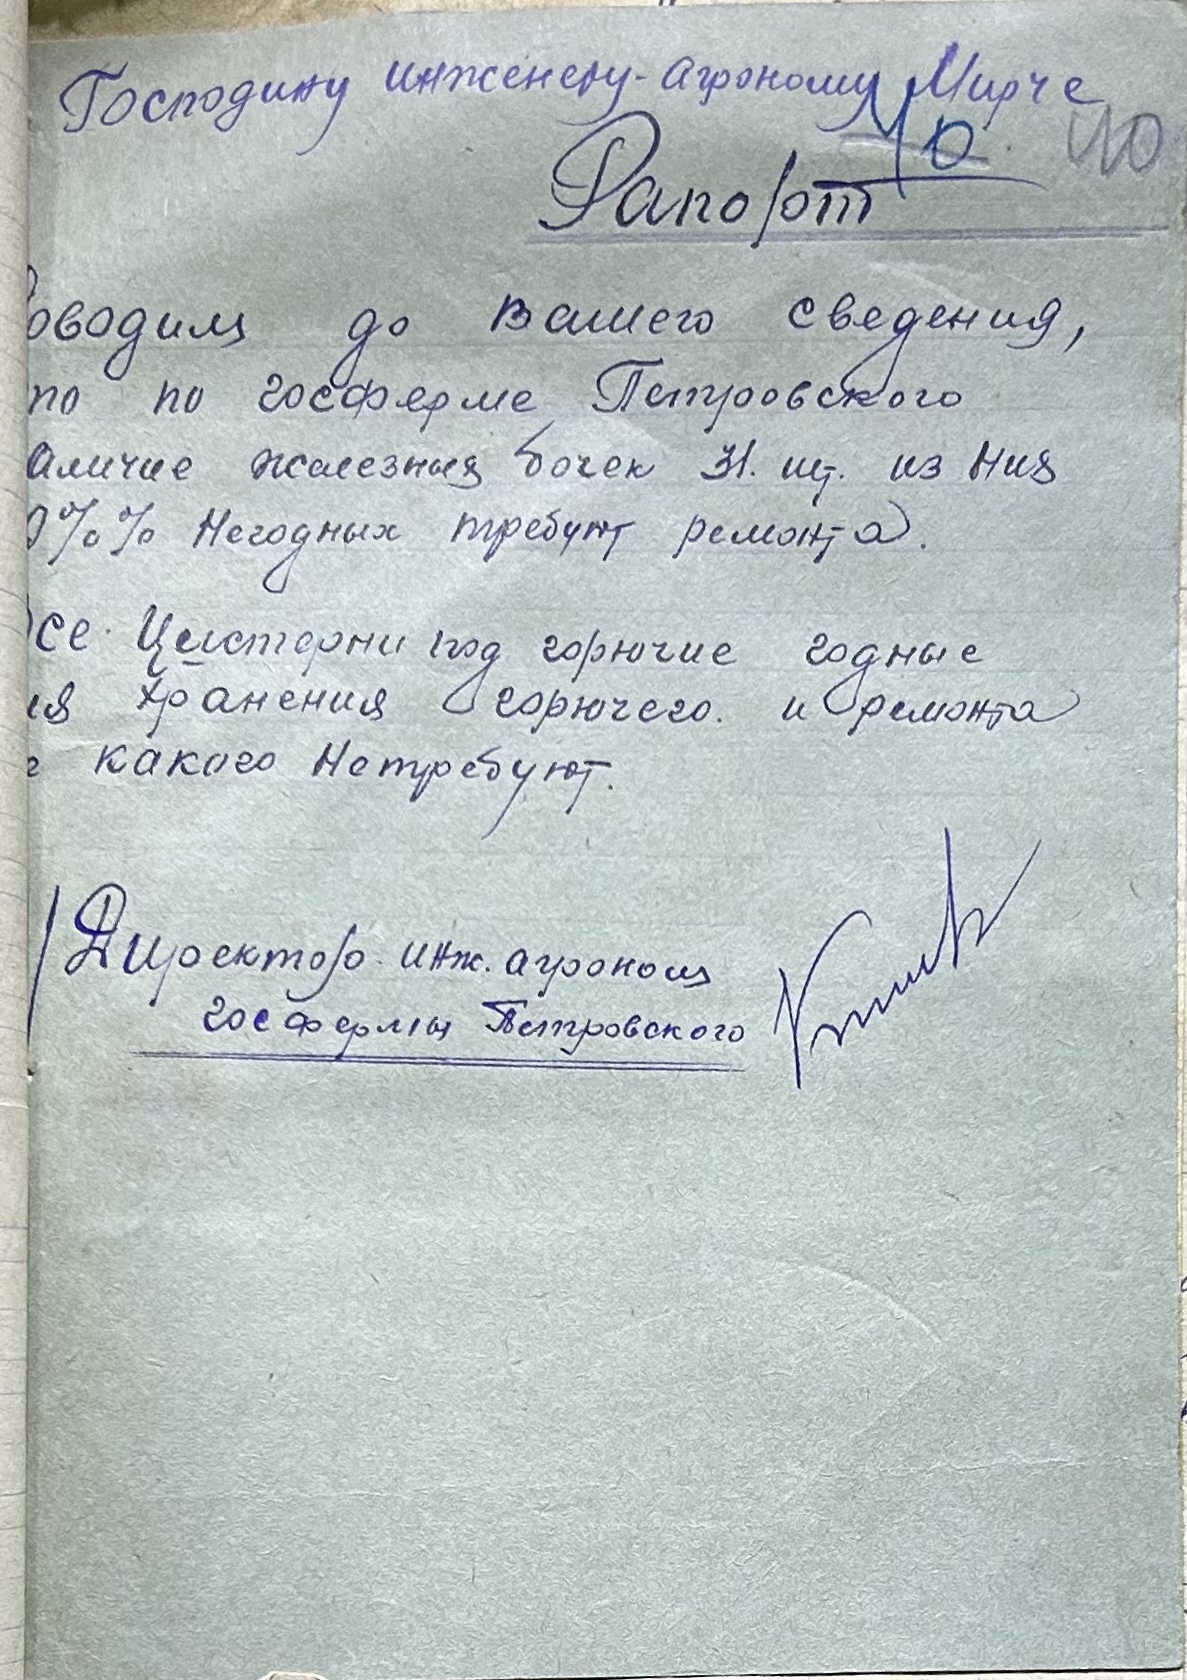 Господину инженеру-агроному Мирче
40. 40
Рапорт
Доводим до вашего сведения,
что по госферме Петровского
наличие железных бочек 31. шт. из них
0%% Негодных требуют ремонта.
Все Цистерни под горючие годные
для хранения горючего. и ремонта
какого Нетребуют.
Директор инж. агроном
госфермы Петровского